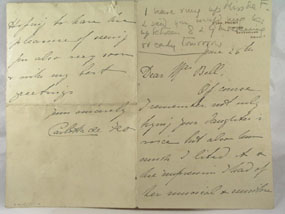 Hoping to have the
pleasure of seeing
you also very soon
& with my best
greetings
yours sincerely
I have rung up
& said you
between 8 &
early tomorrow
June 26th
Dear Mrs Bull.
Of course
I remember not only
hearing your daughter's
voice but also how
much I liked it &
the impression I had of
her musical &